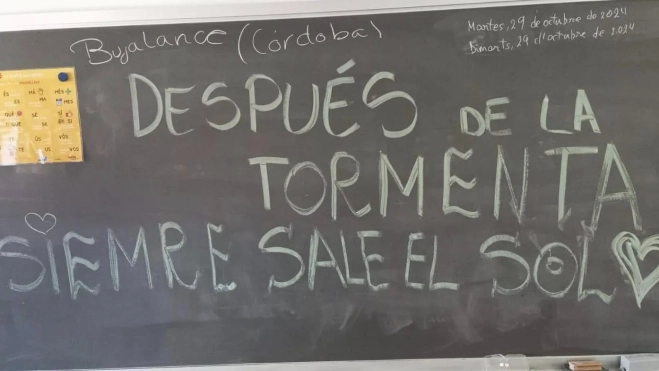 Bujalance (Córdoba)
Martes, 29 de octubre de 2024
Dimarts, 29 d'octubre de 2024
DESPUÉS DE LA
TORMENTA
SIEMRE SALE EL SOL
MÉS
MES
SÉ
SE
ÚS
US
VÓS
VOS